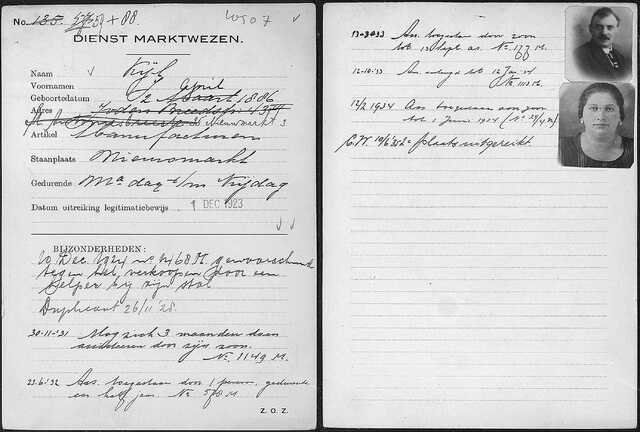 No. 135. 57 59 + 88.
W507 v
DIENST MARKTWEZEN.
Naam
Voornamen J. April
Geboortedatum 2 Maart 1886
Adres Joden Breestr. 73 III
Nieuwmarkt 3
Artikel Manufacturen
Staanplaats Nieuwmarkt
Gedurende Mādag t/m Vrijdag
Datum uitreiking legitimatiebewijs 1 DEC 1923
BIJZONDERHEDEN:
10 Dec. 1924 no. 4468 M. gewaarschuwd
tegen het verkoopen door een
helper bij zijn stal
Duplicaat 26/11 '28.
30-11-'31 Mag zich 3 maanden doen
assisteeren door zijn zoon.
No. 1149 M.
23-6-'32 Ass. toegestaan door 1 persoon, gedurende
een half jaar. No 578 M.
Z.O.Z.
13-3-33 Ass. toegestaan door zoon
tot 13 Sept. as. No. 177 M.
12-10-'33 Ass. verlengd tot 12 Jan. '34
12/2 1934 Ass. toegestaan door zoon
tot 1 Juni 1934
plaats uitgereikt.